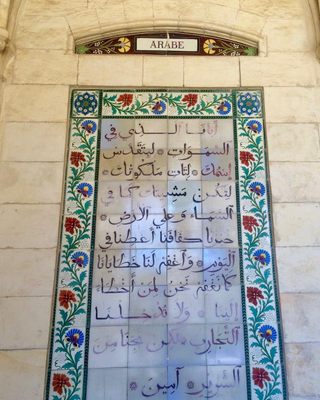 ARABE
أبانا الذي في
السموات * ليتقدس
إسمك * ليأت ملكوتك *
لتكن مشيئتك كما في
السماء و على الأرض *
خبزنا كفافنا أعطنا في
اليوم * وأغفر لنا خطايانا
كما نغفر نحن لمن أخطأ
إلينا * ولا تدخلنا
التجارب * لكن نجنا من
الشرير * آمين *